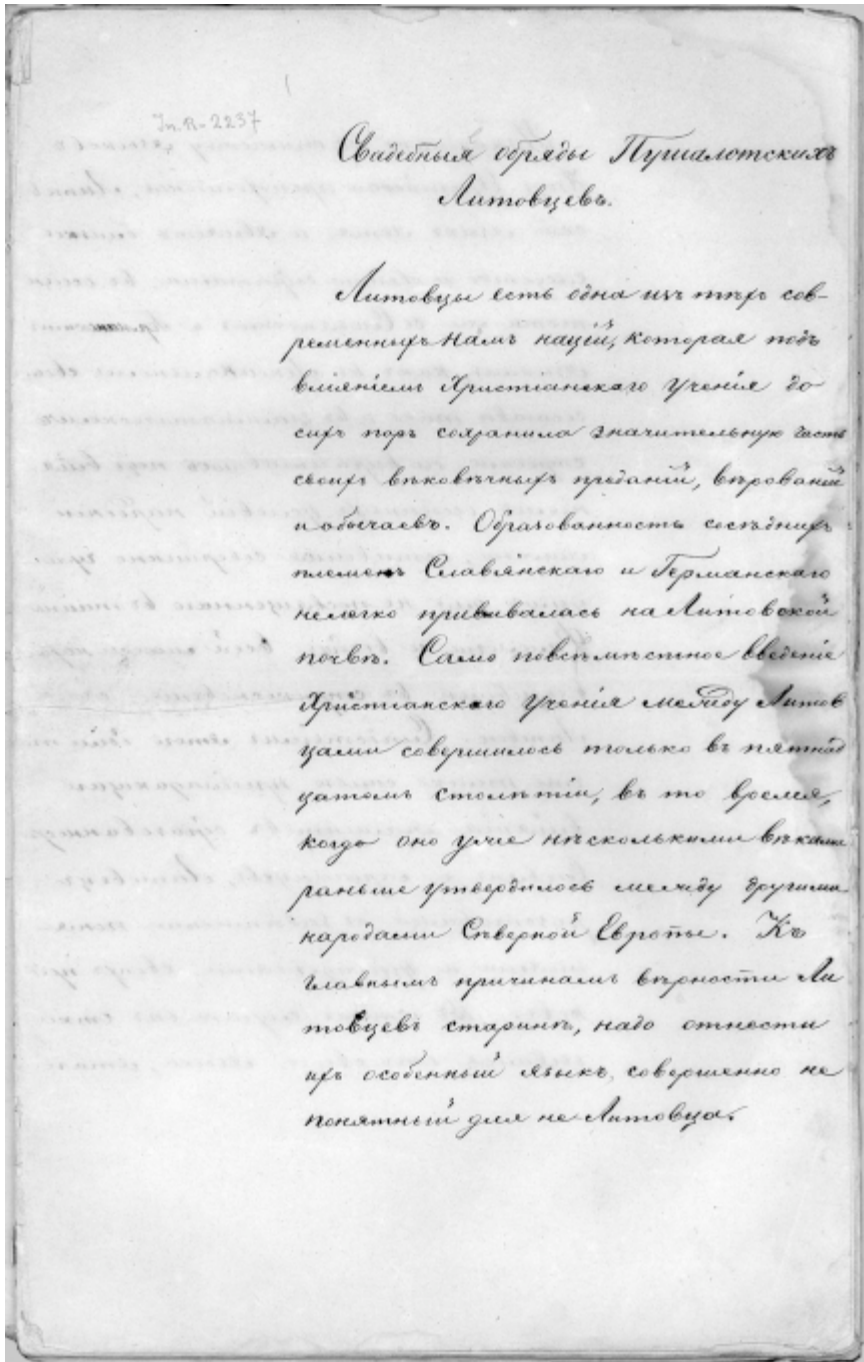 In. R-2237
Свадебныя обряды Пушалотскихъ
Литовцевъ.
Литовцы есть одна изъ тѣхъ сов-
ременныхъ намъ націй, которая подъ
вліяніемъ Христіанскаго Ученія до
сихъ поръ сохранила значительную часть
своихъ вѣковѣчныхъ преданій, вѣрованій
и обычаевъ. Образованность сосѣднихъ
племенъ Славянскаго и Германскаго
нелегко прививалась на Литовской
почвѣ. Само повсѣмѣстное введеніе
Христіанскаго Ученія между Литов
цами совершилось только въ пятнад
цатомъ столѣтіи, въ то время,
когда оно уже нѣсколькими вѣками
раньше утвердилось между другими
народами Сѣверной Европы. Къ
главнымъ причинамъ вѣрности Ли
товцевъ старинѣ, надо отнести
ихъ особенный языкъ, совершенно не
понятный для не Литовца.